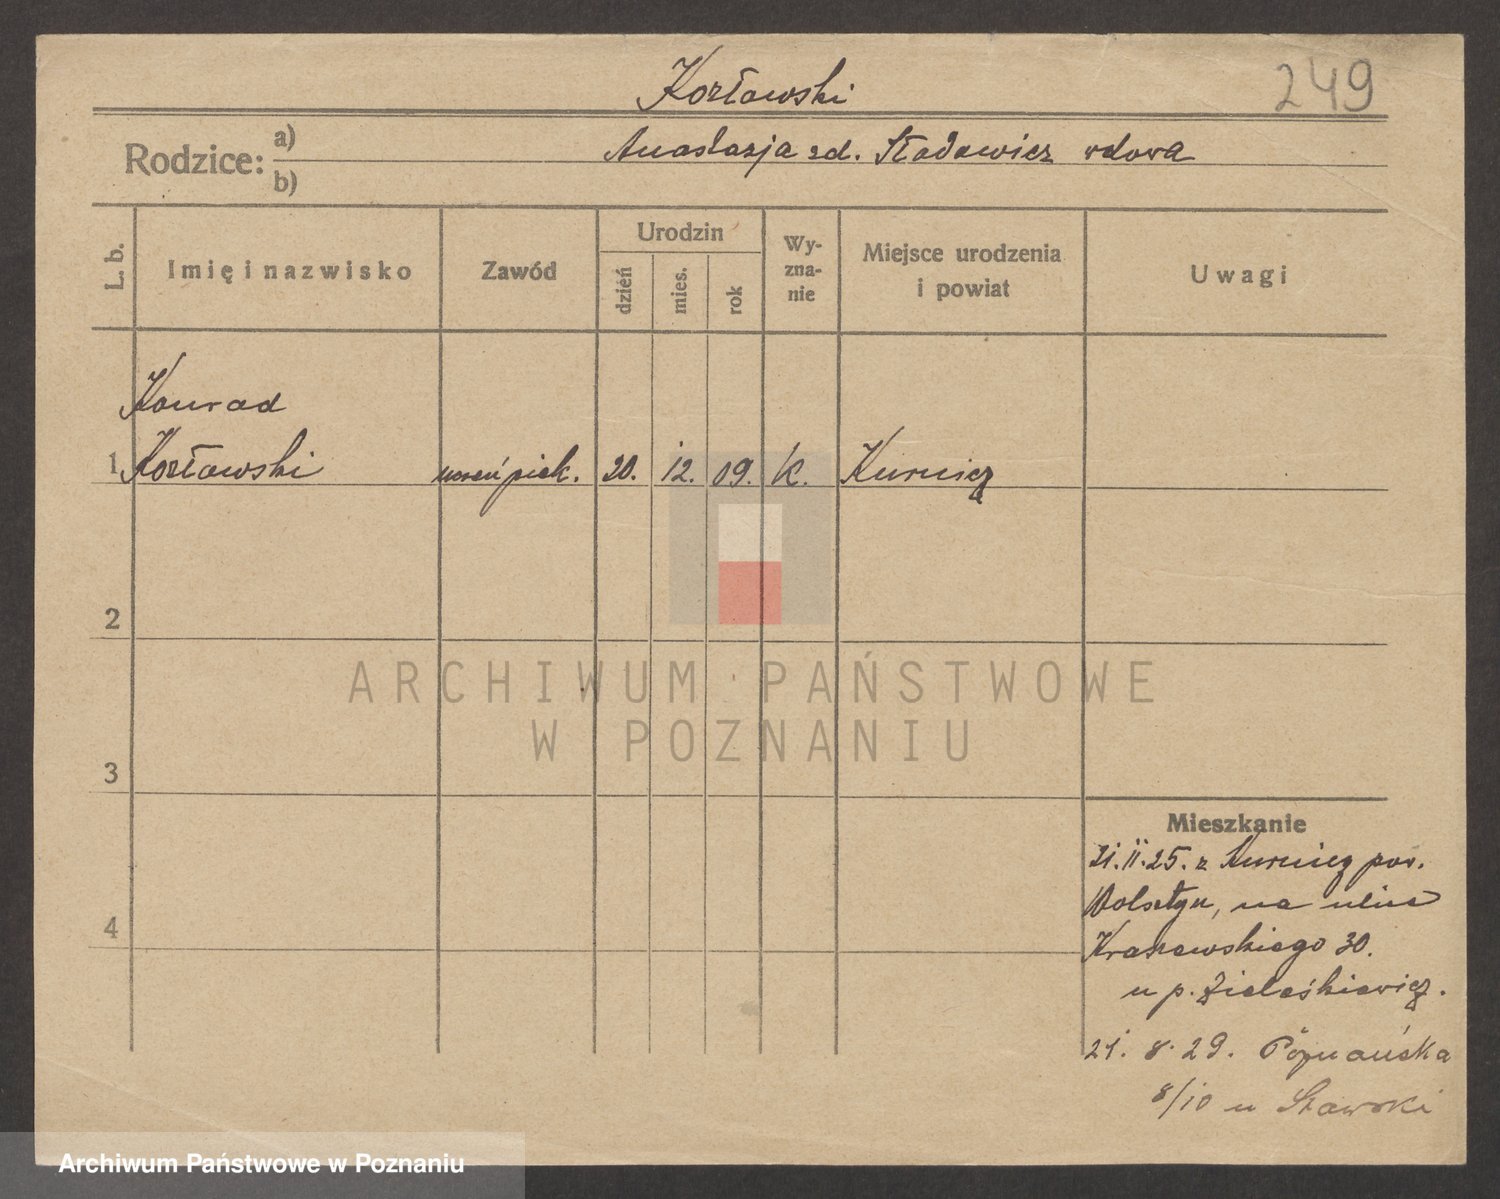 Kozłowski
249
Rodzice:
a)
Anastazja zd. Stadowicz wdowa
b)
L. b.
Imię i nazwisko
Zawód
Urodzin
dzień
mies.
rok
Wy-
zna-
nie
Miejsce urodzenia
i powiat
Uwagi
Konrad
1 Kozłowski uczeń piek. 20. 12. 09. K. Kurnicz
2
3
4
Mieszkanie
21. II. 25. z Kurnicz pow.
Wolsztyn, na ulicę
Kraszewskiego 30.
u p. Zieleśkiewicz.
21. 8. 29. Poznańska
8/10 u Stawski
ARCHIWUM PAŃSTWOWE
W POZNANIU
Archiwum Państwowe w Poznaniu